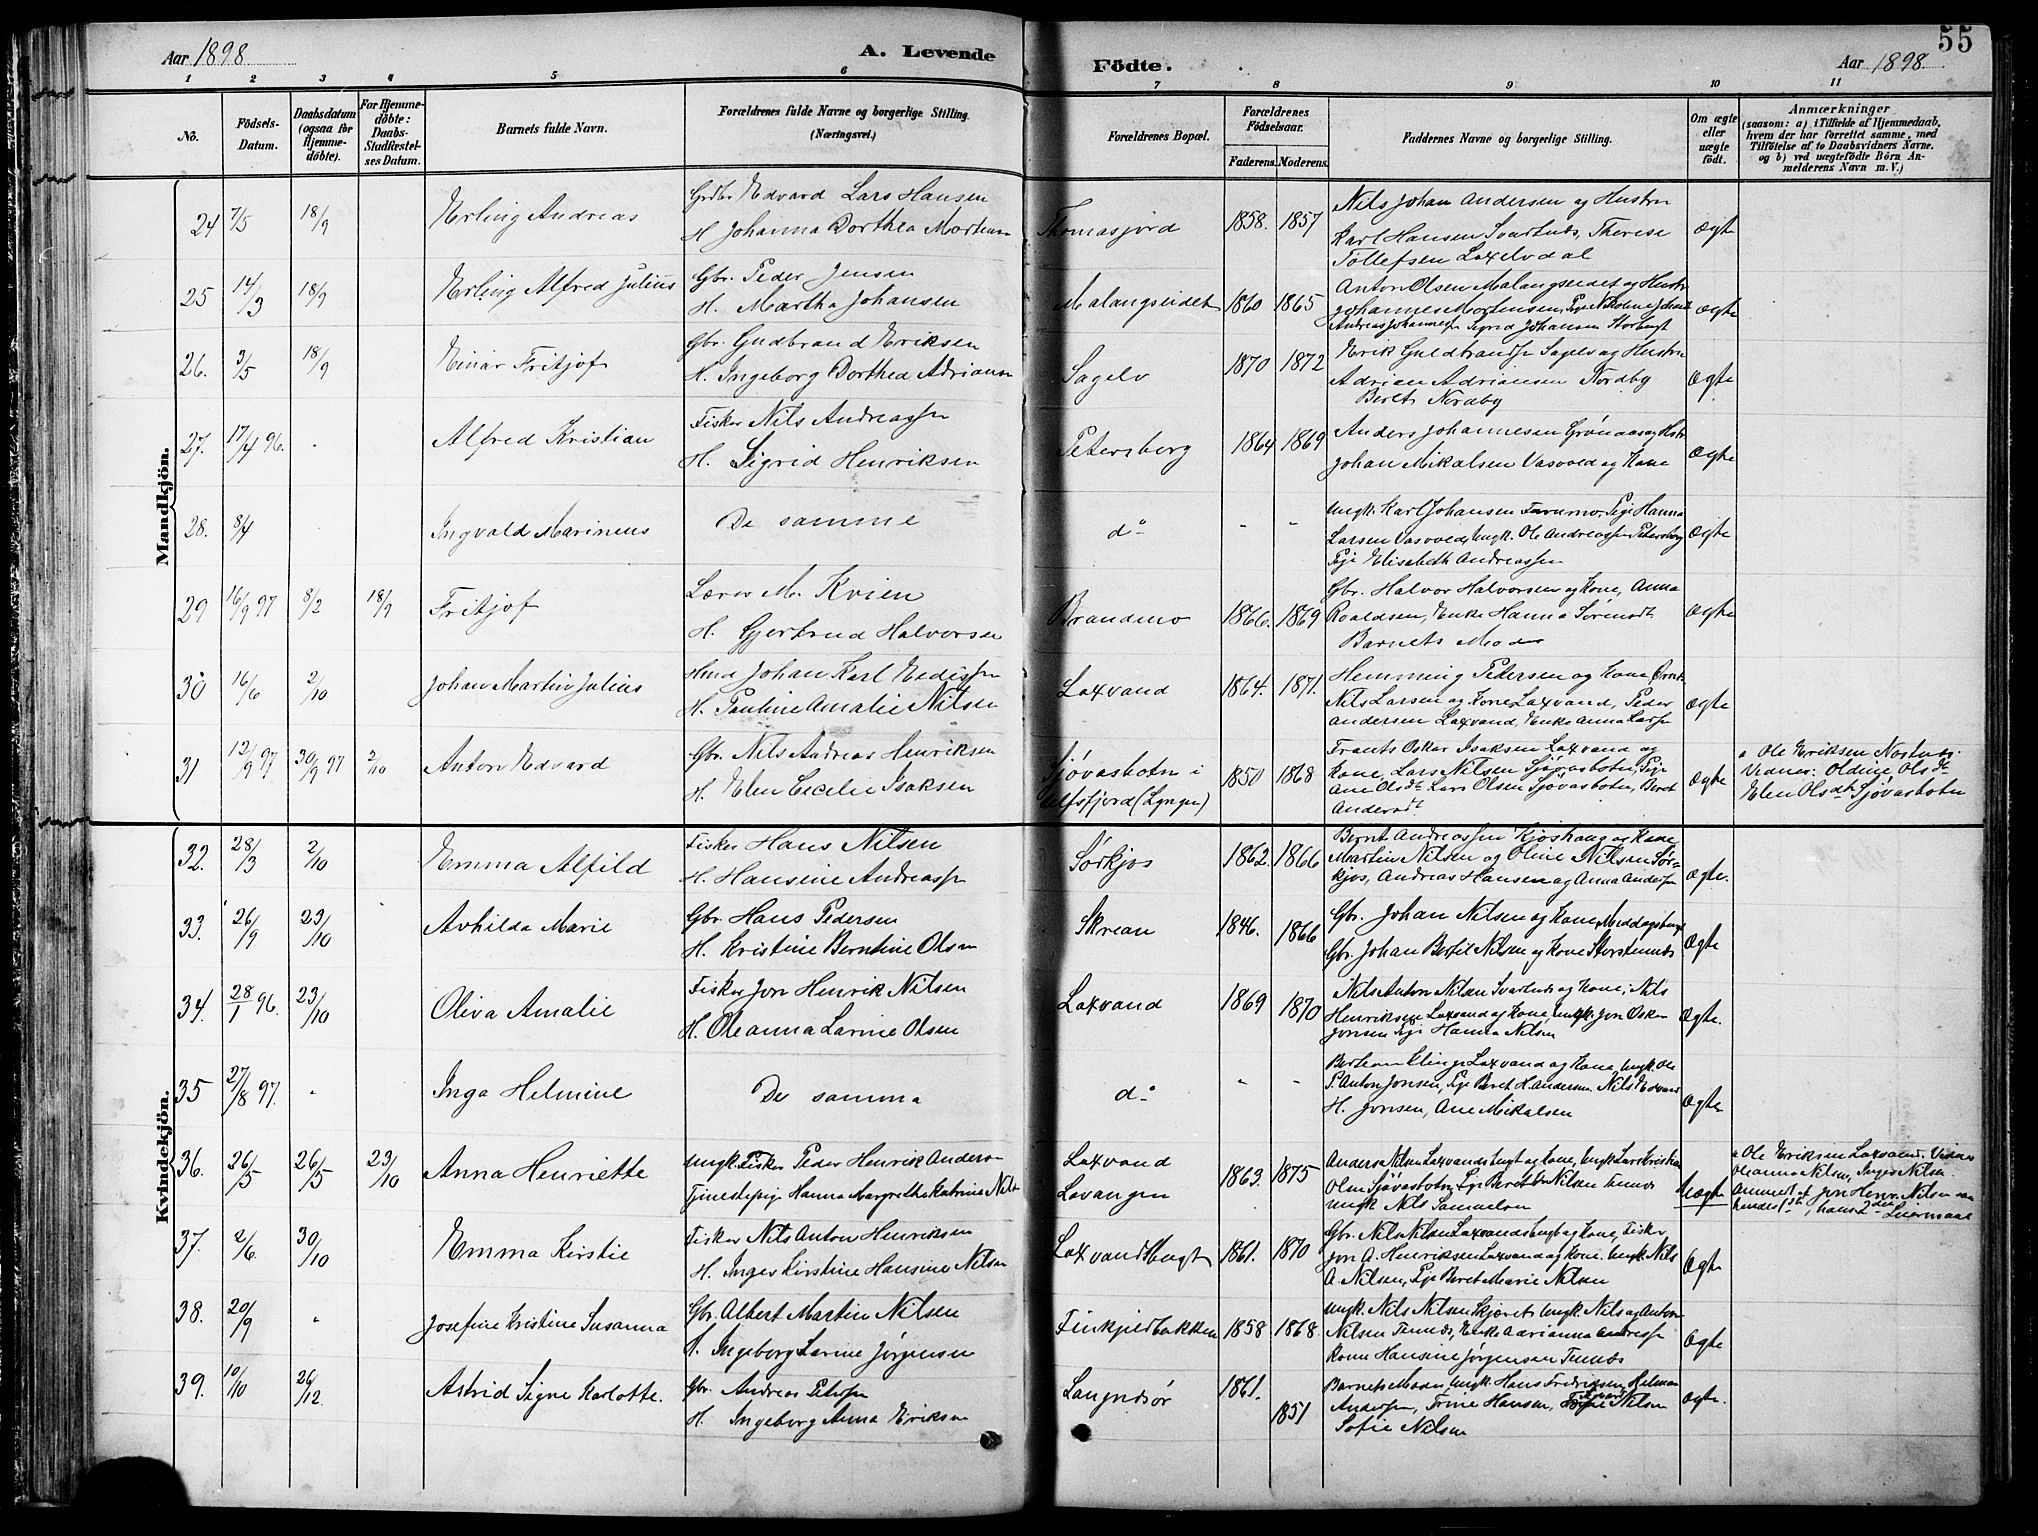 55
Aar 1898
A. Levende
Födte.
Aar 1898.
1 2 3 4 5 6 7 8 9 10 11
No.
Födsels-Datum.
Daabsdatum (ogsaa for Hjemme-döbte).
For Hjemme-döbte: Daabs-Stadfæstel-ses Datum.
Barnets fulde Navn.
Forældrenes fulde Navne og borgerlige Stilling. (Næringsvei.)
Forældrenes Bopæl.
Forældrenes Födselsaar.
Faderens. Moderens.
Faddernes Navne og borgerlige Stilling.
Om ægte eller uægte födt.
Anmærkninger
(saasom: a) i Tilfælde af Hjemmedaab,
hvem der har forrettet samme, med
Tilföielse af to Daabsvidners Navne.
og b) ved uægtefödte Börn An-
melderens Navn m. V.)
Mandkjön.
24 7/5 18/9 Erling Andreas
Grdbr Edvard Lars Hansen
H Johanna Dorthea Mortensen
Thomasjord 1858. 1857
Nils Johan Andersen og Hustru
Karl Hansen Svartnes, Therese
Tollefsen Laxelvdal
ægte
25 14/3 18/9 Erling Alfred Julius
Gbr. Peder Jensen
H. Martha Johansen
Malangseidet 1860 1865
Anton Olsen Malangseidet og Hustru
Johannes Mortensen, Pige
Andreas Johannesen Sigrid Johansen Storbugt
ægte
26. 3/5 18/9 Einar Fritjof
Gbr. Gudbrand Eriksen
H. Ingeborg Dorthea Adriansen
Sagelv 1870 1872
Erik Guldbrandsen Sagelv og Hustru
Adrian Adriansen Nordby
Beret Nordby
ægte.
27. 17/4 96. "
Alfred Kristian
Fisker Nils Andreassen
H. Sigrid Henriksen
Petersborg 1864 1869
Anders Johannesen Grønaas og Hustr
Johan Mikalsen Vasvold og Kone
ægte
28. 8/4 Ingvald Marineus
De samme
do " "
Ungk. Karl Johansen , Pige Hanna
Larsen Vasvold, Ungk. Ole Andreassen Petersborg
Pige Elisabeth Andreassen
ægte
29 16/9 97 8/2 18/9 Fritjof
Lærer M. Kvien
H. Gjertrud Halvorsen
Brandmo 1866. 1869
Gbr. Halvor Halvorsen og Kone, Anna
Roaldsen, Enke Hanna
Barnets Moder
ægte
30 16/6 2/10 Johan Martin Julius
Johan Karl
H. Pauline Amalie Nilsen
Laxvand 1864. 1871.
Hemming Petersen og Kone
Nils Larsen og Kone Laxvand, Peder
Andersen Laxvand, Enke Anna Larsen
ægte
31 12/9 97 30/9 97 2/10 Anton Edvard
Gbr. Nils Andreas Henriksen
H. Elen Cecilie Isaksen
Sjøvasbotn i
Ulfsfjord (Lyngen)
1850 1868
Frants Oskar Isaksen Laxvand og
Kone, Lars Nilsen Sjøvasbotn, Pige
Ane Olsdt Lars Olsen Sjøvasbotn, Beret
Andersdt
ægte
a Ole Eriksen
Vidner: Oldine Olsdt
Elen Olsdt Sjøvasbotn
Kvindekjön.
32. 28/3 2/10 Emma Alfild
Fisker Hans Nilsen
H. Hansine Andreassen
Sørkjos 1862. 1866
Bernt Andreassen Kjoshaug og Kone
Martin Nilsen og Oline Nilsen Sør=
kjos, Andreas Hansen og Anna Andersen
ægte.
33. 26/9 23/10 Avhilda Marie
Gbr. Hans Pedersen
H. Kristine Berntine Olsen
Skrean 1846. 1866
Gbr. Johan Nilsen og Kone Middagsbugt
Gbr. Johan Bertil Nilsen og Kone Storstennes
Ægte
34. 28/1 96. 23/10 Oliva Amalie
Fisker Jon Henrik Nilsen
H. Oleanna Larine Olsen
Laxvand 1869 1870
Nils Anton Nilsen Svartnes og Kone, Nils
Henriksen Laxvand og Kone, Ungk. Jon Oskar
Jonsen Pige Hanna Nilsen
Ægte.
35 27/8 97. " Inga Helmine
De samme
do " "
Laxvand og Kone Ungk. Ole
P. Anton Jonsen, Pige Beret H. Andersen Nils Edvard
H. Jonsen, Ane Mikalsen
Ægte
36. 26/5 26/5 23/10 Anna Henriette
Ungk. Fisker Peder Henrik Andersen
Tjenestepige Hanna Margrethe Katrine Nilsen
Laxvand
Lavangen
1863. 1875
Anders Nilsen Laxvandsbugt og Kone, Ungk Lars Kristian
Olsen Sjøvasbotn, Pige Beret Nilsen
Ungk Nils Samuelsen
Uægte
a Ole Eriksen Laxvand. Vidner
Oleanna Nilsen, Inger Nilsen
Anmeldt af Jon Henr. Nilsen
hendes 1ste, hans 2det Leiermaal
37. 2/6. 30/10 Emma Kirstie
Fisker Nils Anton Henriksen
H. Inger Kirstine Hansine Nilsen
Laxvandbugt 1861. 1870
Gbr. Nils Nilsen Laxvandsbugt og Kone, Fisker
Jon A. Henriksen Laxvand og Kone Ungk Nils
A. Nilsen, Pige Beret Marie Nilsen
Ægte
38. 20/9 " Josefine Kristine Susanna
Gbr. Albert Martin Nilsen
H. Ingeborg Larine Jørgensen
Finkjeldbakken 1858 1868.
Ungk. Nils Nilsen Skjæret, Ungk. Nils og Anton
Nilsen Tennes, Enke Adrianna Andreassen
Kone Hansine Jørgensen Tennes
Ægte
39. 10/10 26/12. Astrid Signe Karlotte.
Gbr. Andreas Petersen
H. Ingeborg Anna Eriksen
Langndsør 1861. 1851
Barnets Moder, Ungk. Hans Fredriksen, Helmer
Andersen, Trine Hansen, Edvard Nilsen
Sofie Nilsen
ægte.